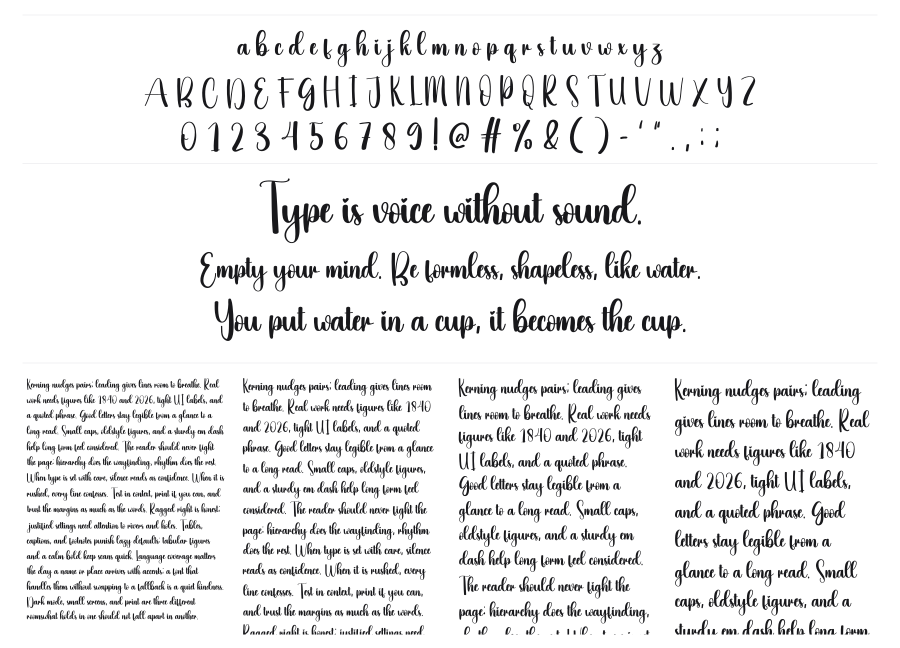 a b c d e f g h i j k l m n o p q r s t u v w x y z
A B C D E F G H I J K L M N O P Q R S T U V W X Y Z
0 1 2 3 4 5 6 7 8 9 ! @ # % & ( ) - ' " . , : ;
Type is voice without sound.
Empty your mind. Be formless, shapeless, like water.
You put water in a cup, it becomes the cup.
Kerning nudges pairs; leading gives lines room to breathe. Real
work needs figures like 1840 and 2026, tight UI labels, and
a quoted phrase. Good letters stay legible from a glance to a
long read. Small caps, oldstyle figures, and a sturdy em dash
help long form feel considered. The reader should never fight
the page: hierarchy does the wayfinding, rhythm does the rest.
When type is set with care, silence reads as confidence. When it is
rushed, every line confesses. Test in context, print if you can, and
trust the margins as much as the words. Ragged right is honest;
justified settings need attention to rivers and holes. Tables,
captions, and footnotes punish lazy defaults: tabular figures
and a calm bold keep scans quick. Language coverage matters
the day a name or place arrives with accents: a font that
handles them without swapping to a fallback is a quiet kindness.
Dark mode, small screens, and print are three different
rooms;what holds in one should not fall apart in another.
Kerning nudges pairs; leading gives lines room
to breathe. Real work needs figures like 1840
and 2026, tight UI labels, and a quoted
phrase. Good letters stay legible from a glance
to a long read. Small caps, oldstyle figures,
and a sturdy em dash help long form feel
considered. The reader should never fight the
page: hierarchy does the wayfinding, rhythm
does the rest. When type is set with care, silence
reads as confidence. When it is rushed, every
line confesses. Test in context, print if you can,
and trust the margins as much as the words.
Ragged right is honest; justified settings need
Kerning nudges pairs; leading gives
lines room to breathe. Real work needs
figures like 1840 and 2026, tight
UI labels, and a quoted phrase.
Good letters stay legible from a
glance to a long read. Small caps,
oldstyle figures, and a sturdy em
dash help long form feel considered.
The reader should never fight the
page: hierarchy does the wayfinding,
Kerning nudges pairs; leading
gives lines room to breathe. Real
work needs figures like 1840
and 2026, tight UI labels,
and a quoted phrase. Good
letters stay legible from a
glance to a long read. Small
caps, oldstyle figures, and a
sturdy em dash help long form